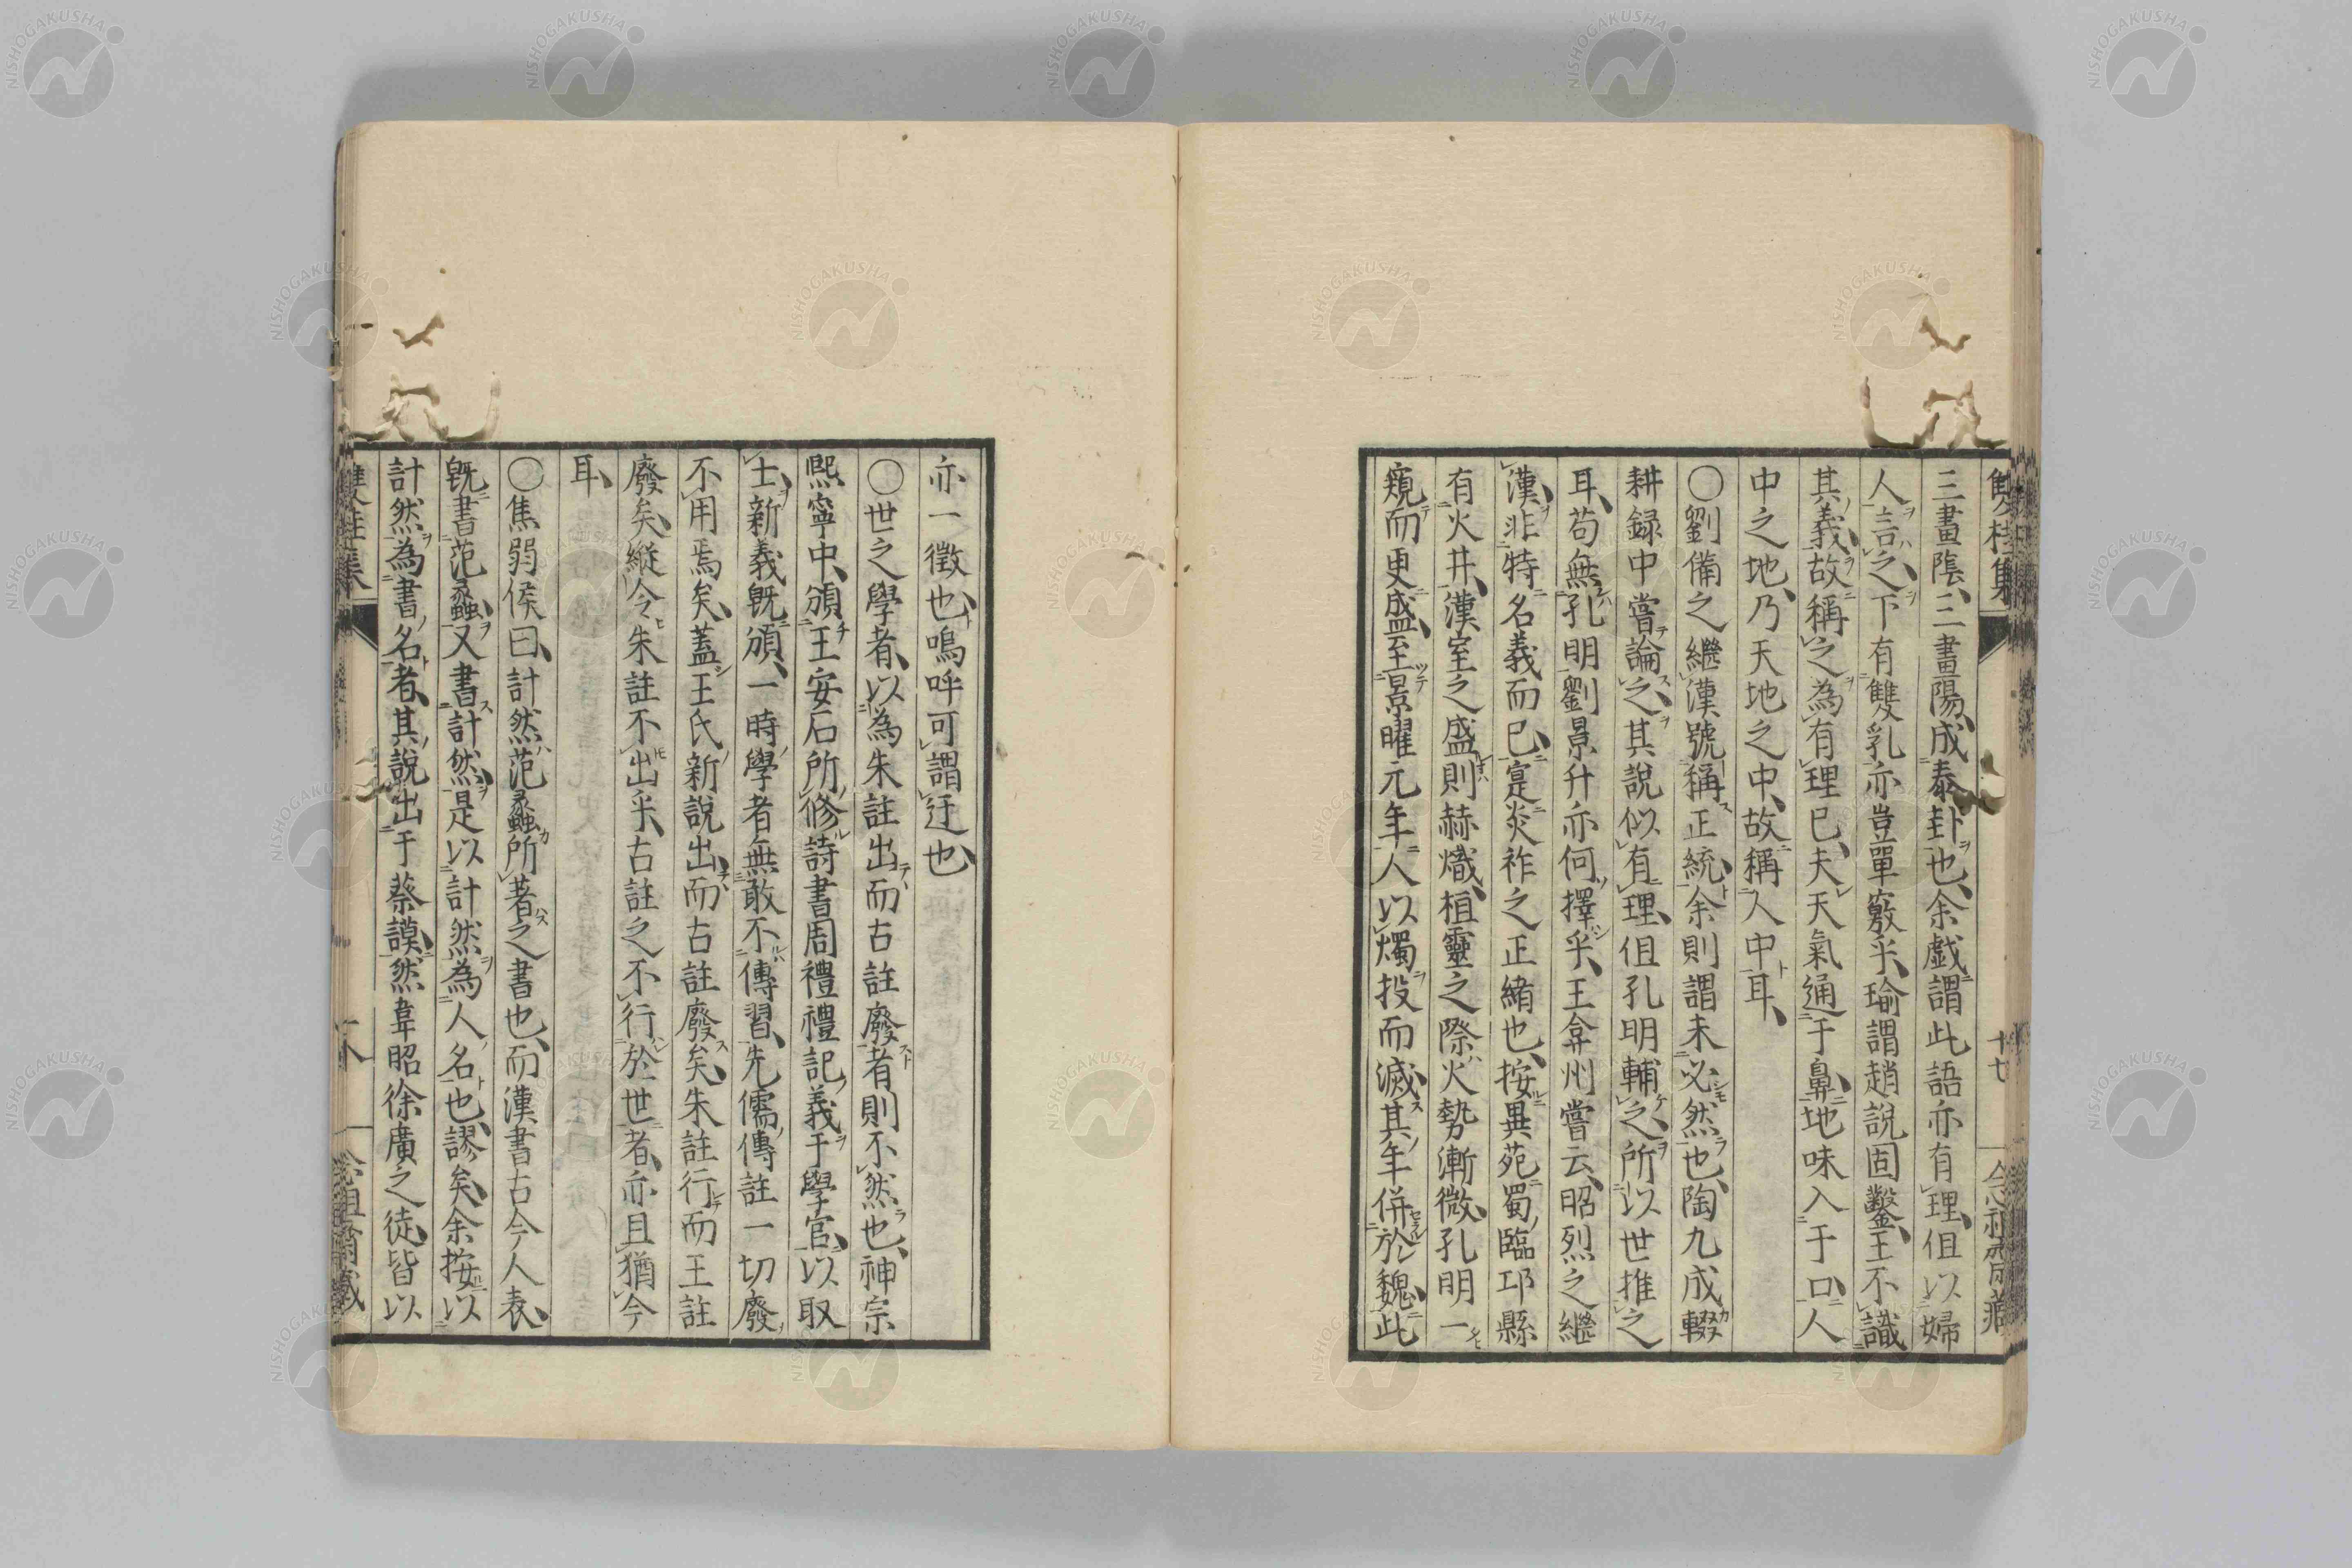 雙桂集 十七 念祖齋藏
三畫陰、三畫陽、成泰卦也、余戲謂此語亦有理、但以婦
人言之、下有雙乳亦豈單竅乎、瑜謂趙說固鑿、王不識
其義、故稱之為有理已、夫天氣通于鼻、地味入于口、人
中之地、乃天地之中、故稱人中耳、
〇劉備之繼漢號稱正統、余則謂未必然也、陶九成輟
耕録中嘗論之、其說似有理、但孔明輔之所以世推之
耳、苟無孔明劉景升亦何擇乎、王弇州嘗云、昭烈之繼
漢、非特名義而已、寔炎祚之正緒也、按異苑蜀臨邛縣
有火井、漢室之盛則赫熾、桓靈之際火勢漸微、孔明一
窺而更盛、至景曜元年人以燭投而滅、其年併於魏、此
亦一徵也、嗚呼可謂迂也、
〇世之學者、以為朱註出而古註廢者則不然也、神宗
熙寧中、頒王安石所修詩書周禮禮記義于學官、以取
士、新義既頒、一時學者無敢不傳習、先儒傳註一切廢
不用焉矣、蓋王氏新說出、而古註廢矣、朱註行而王註
廢矣、縱令朱註不出乎、古註之不行於世者、亦且猶今
耳、
〇焦弱侯曰、計然范蠡所著之書也、而漢書古今人表、
既書范蠡、又書計然、是以計然為人名也、謬矣、余按以
計然為書名者、其說出于蔡謨、然韋昭徐廣之徒、皆以
雙桂集 十八 念祖齋藏
NISHOGAKUSHA